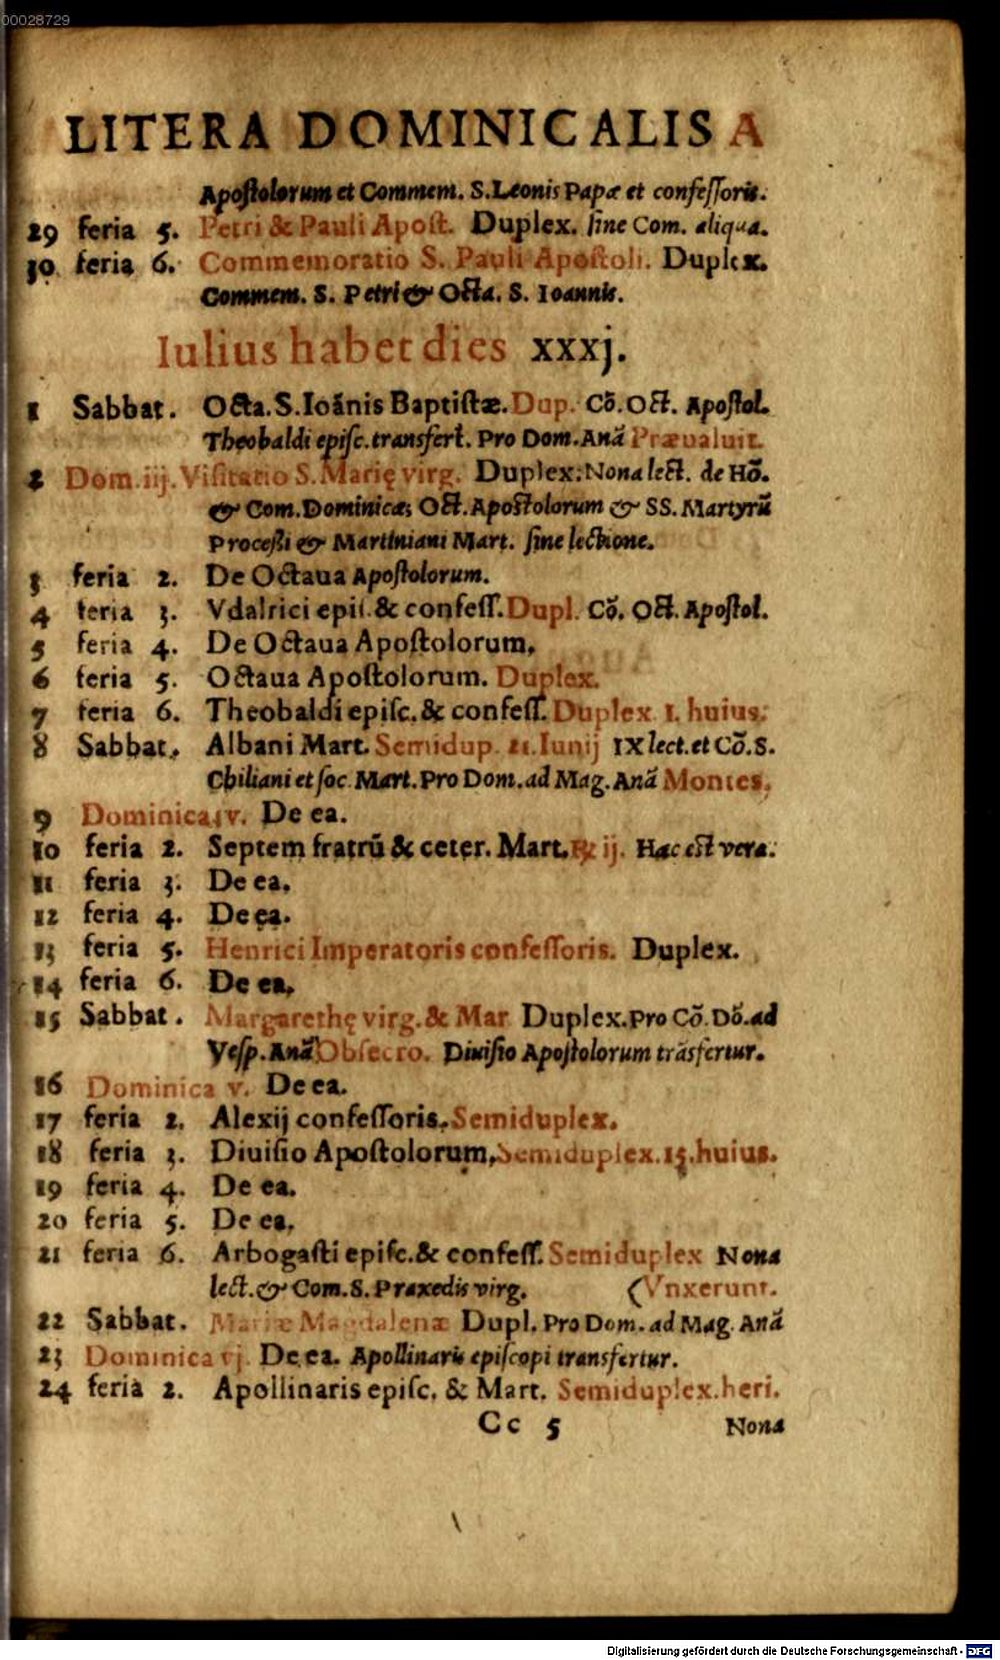 00028729
LITERA DOMINICALIS A
Apoſtolorum et Commem. S. Leonis Papæ et confeſſoris.
29 feria 5. Petri & Pauli Apoſt. Duplex. ſine Com. aliqua.
30 feria 6. Commemoratio S. Pauli Apoſtoli. Duplex.
Commem. S. Petri & Octa. S. Ioannis.
Iulius habet dies xxxj.
1 Sabbat. Octa. S. Ioãnis Baptiſtæ. Dup. Cõ. Oct. Apoſtol.
Theobaldi epiſc. transfert. Pro Dom. Anã Præualuit.
2 Dom. iij. Viſitatio S. Marię virg. Duplex: Nona lect. de Hõ.
& Com. Dominicæ; Oct. Apoſtolorum & SS. Martyrũ
Proceßi & Martiniani Mart. ſine lectione.
3 feria 2. De Octaua Apoſtolorum.
4 feria 3. Vdalrici epiſ. & confeſſ. Dupl. Cõ. Oct. Apoſtol.
5 feria 4. De Octaua Apoſtolorum.
6 feria 5. Octaua Apoſtolorum. Duplex.
7 feria 6. Theobaldi epiſc. & confeſſ. Duplex 1. huius.
8 Sabbat. Albani Mart. Semidup. 21. Iunij IX lect. et Cõ. S.
Chiliani et ſoc. Mart. Pro Dom. ad Mag. Anã Montes.
9 Dominica iv. De ea.
10 feria 2. Septem fratrũ & ceter. Mart. ℟ ij. Hæc eſt vera.
11 feria 3. De ea.
12 feria 4. De ea.
13 feria 5. Henrici Imperatoris confeſſoris. Duplex.
14 feria 6. De ea.
15 Sabbat. Margarethę virg. & Mar Duplex. Pro Cõ. Dõ. ad
Veſp. Anã Obſecro. Diuiſio Apoſtolorum trãsfertur.
16 Dominica v. De ea.
17 feria 2. Alexij confeſſoris. Semiduplex.
18 feria 3. Diuiſio Apoſtolorum, Semiduplex. 15. huius.
19 feria 4. De ea.
20 feria 5. De ea.
21 feria 6. Arbogaſti epiſc. & confeſſ. Semiduplex Nona
lect. & Com. S. Praxedis virg. (Vnxerunt.
22 Sabbat. Mariæ Magdalenæ Dupl. Pro Dom. ad Mag. Anã
23 Dominica vj. De ea. Apollinaris epiſcopi transfertur.
24 feria 2. Apollinaris epiſc. & Mart. Semiduplex. heri.
Cc 5 Nona
Digitalisierung gefördert durch die Deutsche Forschungsgemeinschaft - DFG